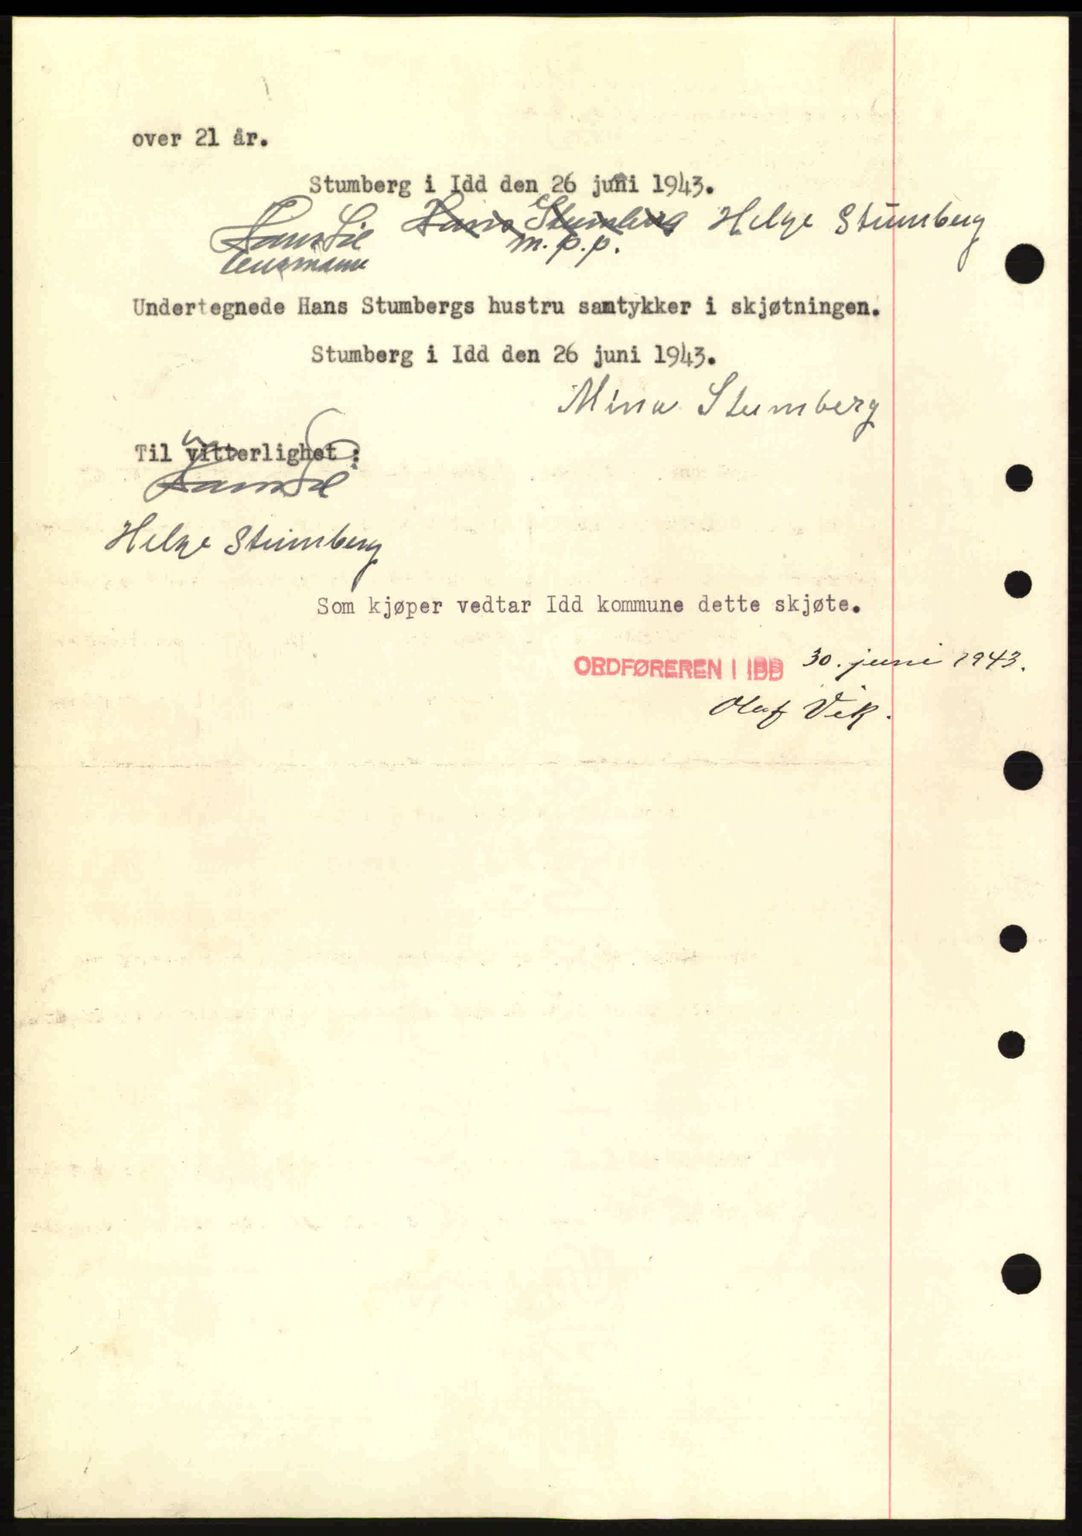 over 21 år.
Stumberg i Idd den 26 juni 1943.
Hans Lie Hans Stumberg Helge Stumberg
lensmann m.p.p.
Undertegnede Hans Stumbergs hustru samtykker i skjøtningen.
Stumberg i Idd den 26 juni 1943.
Mina Stumberg
Til vitterlighet :
Hans Lie
Helge Stumberg
Som kjøper vedtar Idd kommune dette skjøte.
ORDFØREREN I IDD 30. juni 1943.
Olaf Vik.